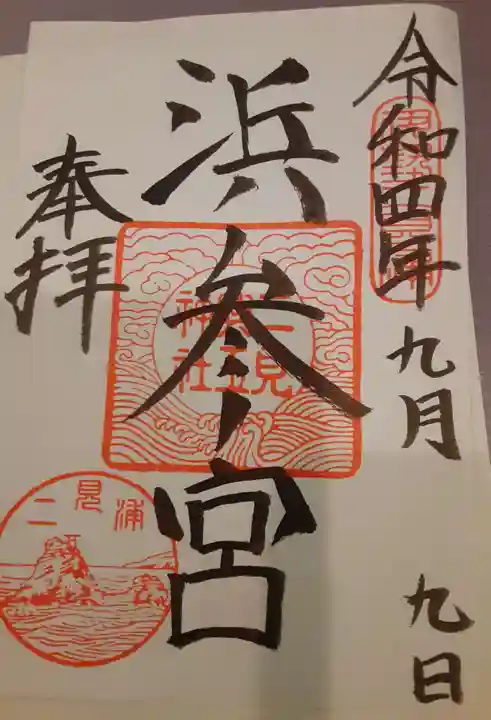 令和四年 九月 九日
伊勢二見浦
浜参宮
二見
興玉
神社
奉拝
二見浦